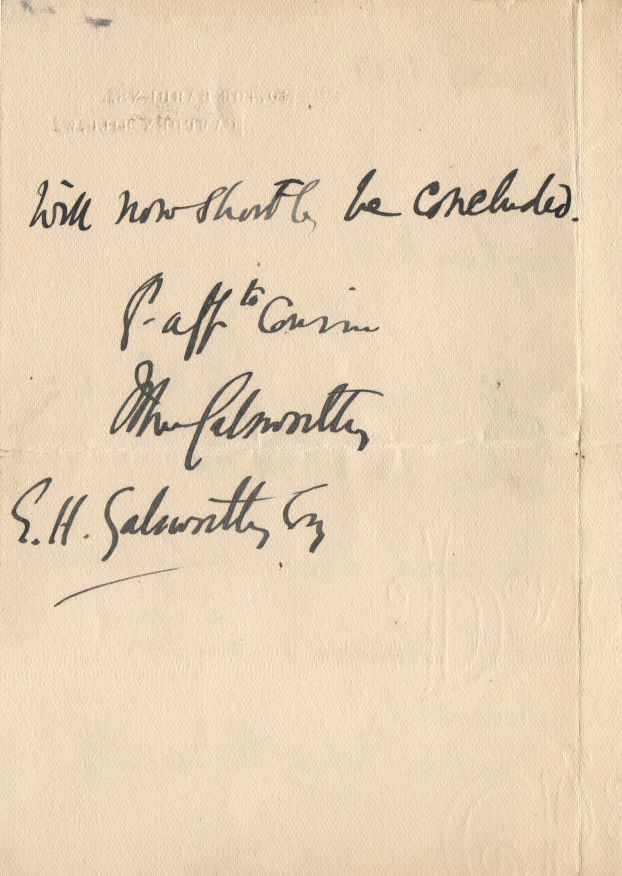 will now shortly be concluded.
Yr affte Cousin
John Galsworthy
E. H. Galsworthy Esq